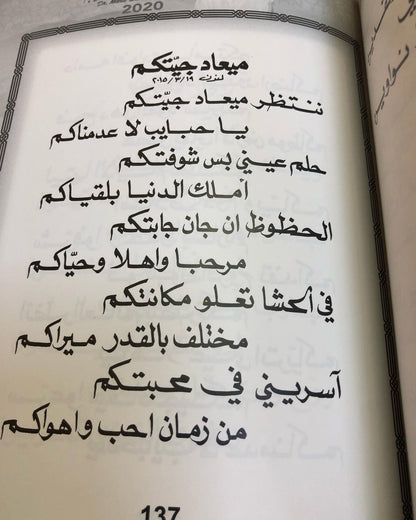 2020
ميعاد جيّتكم
لندن ٢٠١٥/٣/١٩
ننتظر ميعاد جيّتكم
يا حبايب لا عدمناكم
حلم عيني بس شوفتكم
أملك الدنيا بلقياكم
الحظوظ ان جان جابتكم
مرحبا واهلا وحيّاكم
في الحشا تعلو مكانتكم
مختلف بالقدر ميراكم
آسريني في محبتكم
من زمان احب واهواكم
137